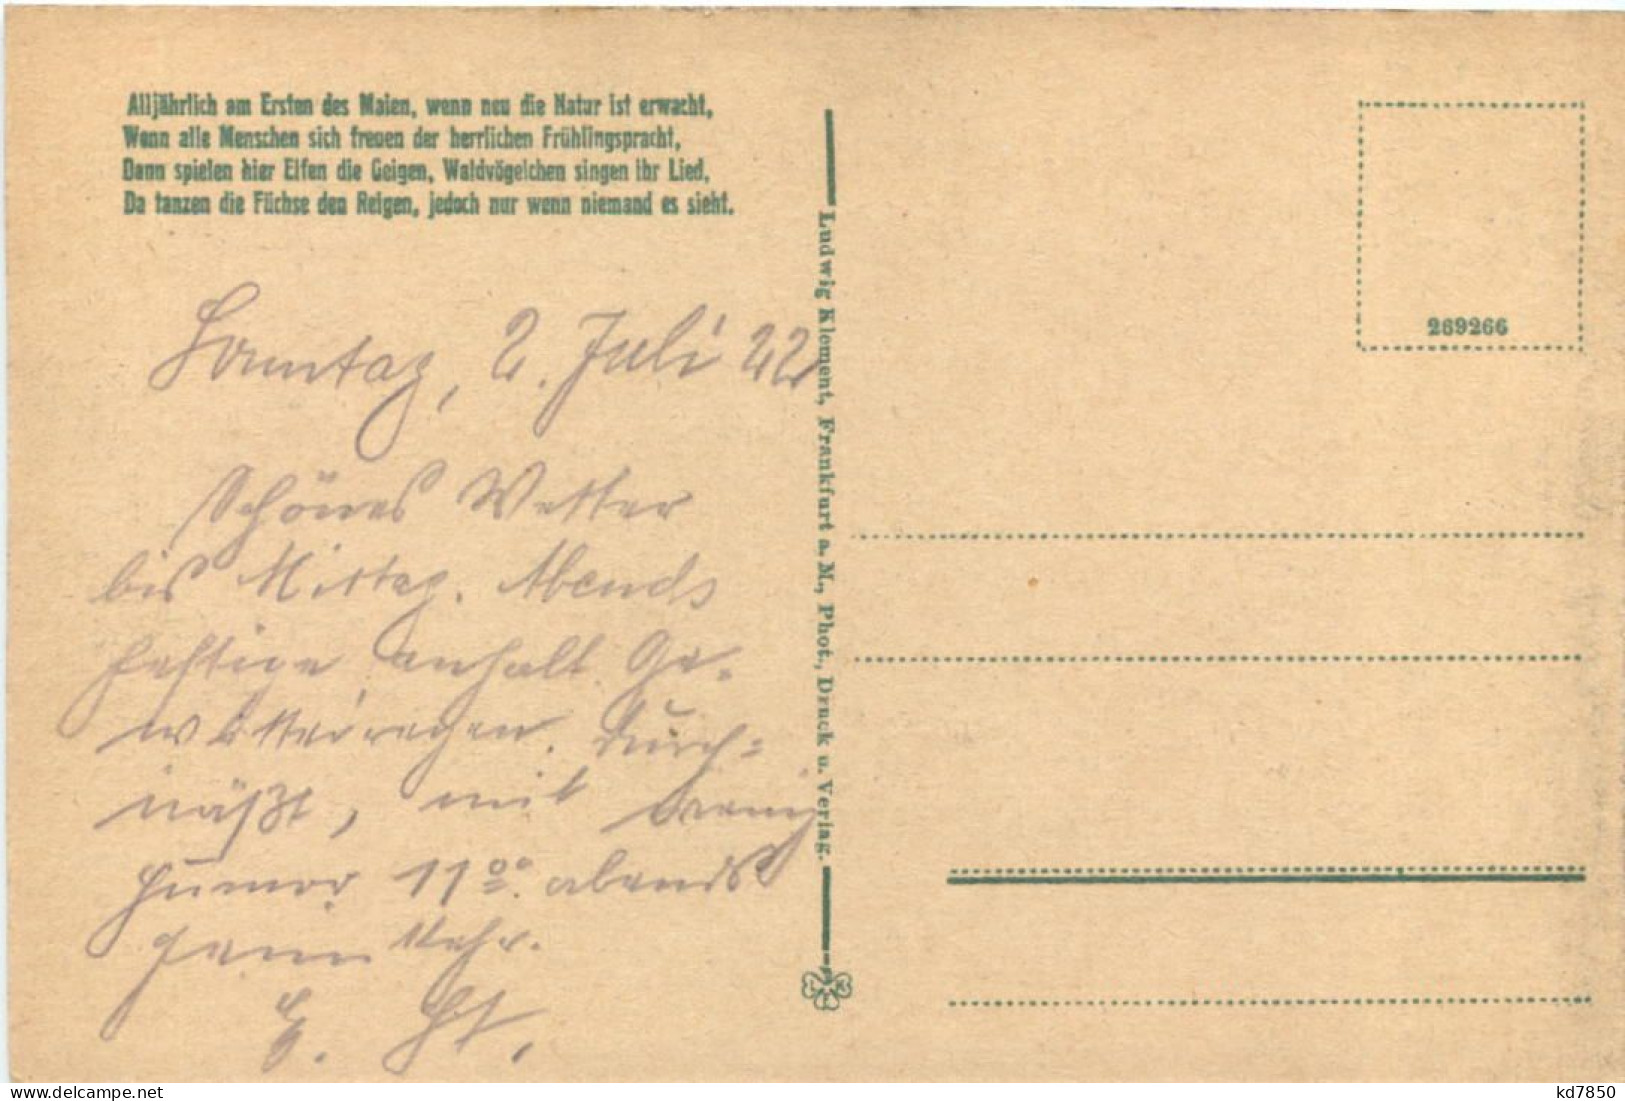 Alljährlich am Ersten des Maien, wenn neu die Natur ist erwacht,
Wenn alle Menschen sich freuen der herrlichen Frühlingspracht,
Dann spielen hier Elfen die Geigen, Waldvögelchen singen ihr Lied,
Da tanzen die Füchse den Reigen, jedoch nur wenn niemand es sieht.
Sonntag, 2. Juli 22
Schönes Wetter
bis Mittag. Abends
heftige anhalt. Ge-
witterregen. Durch-
näßt, mit wenig
Humor 11⁰⁰ abends
Ludwig Klement, Frankfurt a. M., Phot., Druck u. Verlag.
L K F
269266
delcampe.net
kd7850